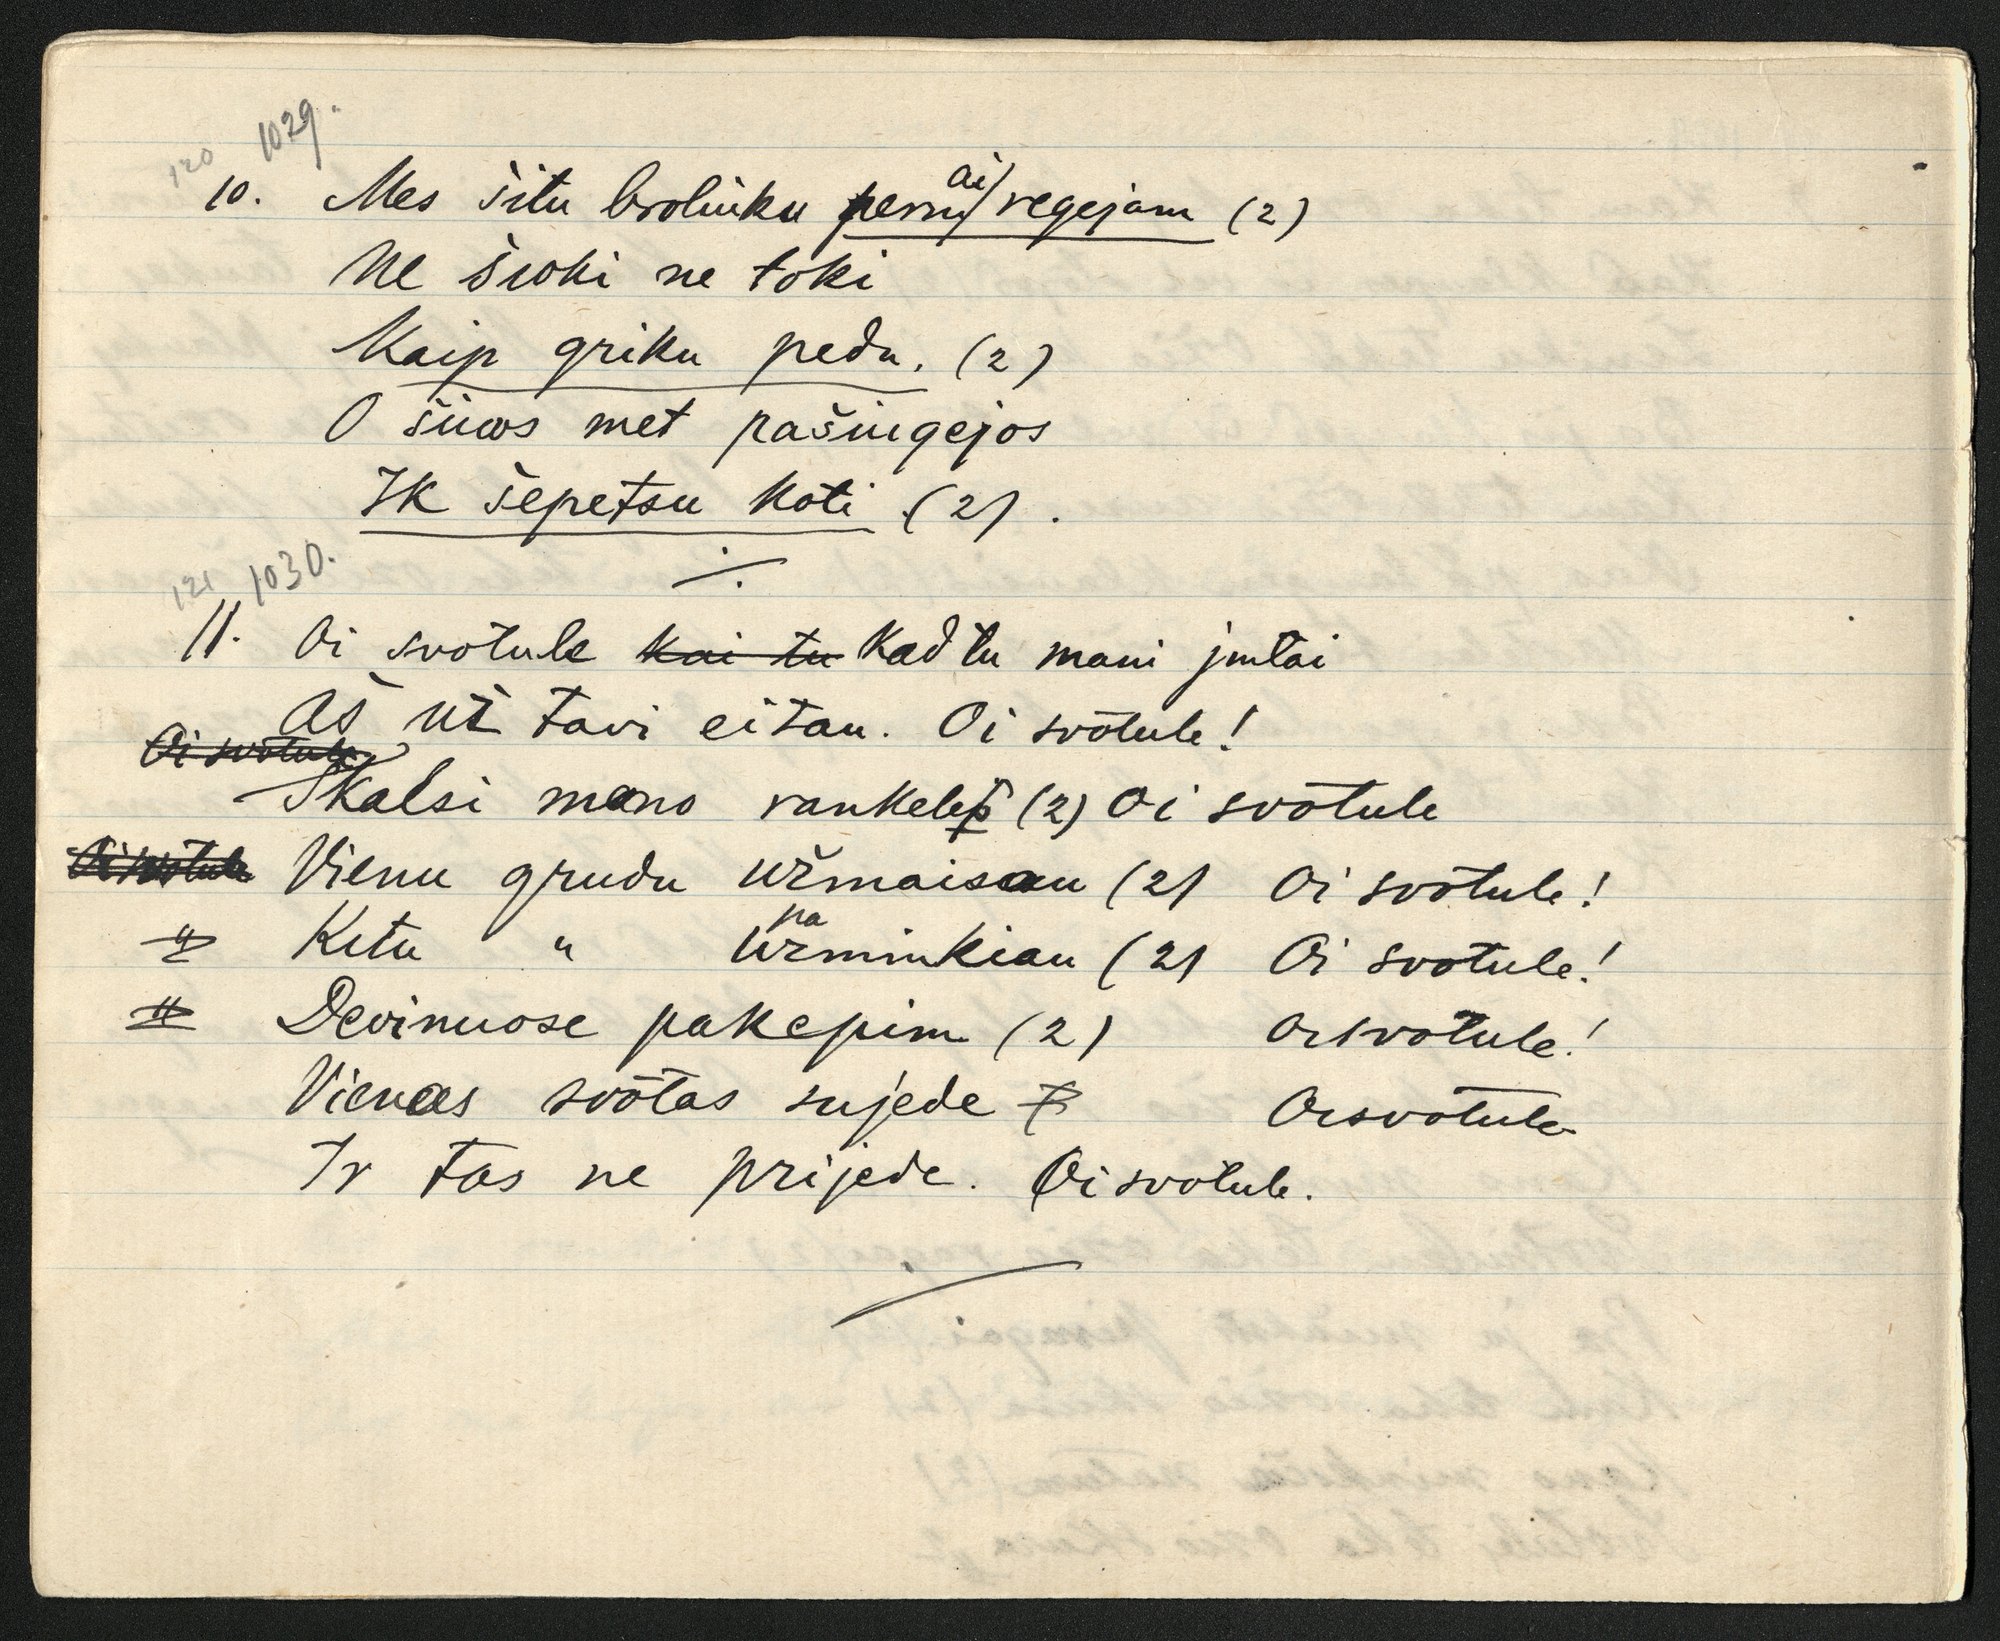 120 1029.
10. Mes šitu brolinku pernai regejam (2)
Ne šioki ne toki
Kaip griku pedu. (2)
O šiuos met pašiugejos
Ik šepetsu koti (2).
121 1030.
11. Oi svotule kai tu kad tu mani jmtai
Aš už tavi eitau. Oi svōtule!
Oi svōtule
Skalsi mano rankele (2) Oi svōtule
Oi svōtule Vienu grudu užmaisau (2) Oi svōtule!
" Kitu " užminkiau (2) Oi svotule!
pa
" Devinuose pakepim (2) Oi svotule!
Vienas svōtas sujede Oi svotule
Ir tas ne prijede. Oi svōtule.